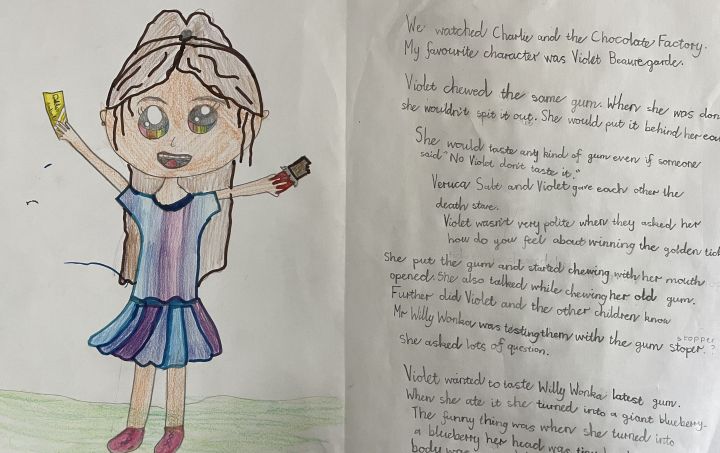 We watched Charlie and the Chocolate Factory.
My favourite character was Violet Beauregarde.
Violet chewed the same gum. When she was don
she wouldn't spit it out. She would put it behind her ear
She would taste any kind of gum even if someone
said "No Violet don't taste it."
Veruca Salt and Violet gave each other the
death stare.
Violet wasn't very polite when they asked her
how do you feel about winning the golden tick
She put the gum and started chewing with her mouth
opened. She also talked while chewing her old gum.
Further did Violet and the other children know
Mr Willy Wonka was testing them with the gum
stopper
stoper. ?
She asked lots of question.
Violet wanted to taste Willy Wonka latest gum.
When she ate it she turned into a giant blueberry.
The funny thing was when she turned into
a blueberry her head was
body was